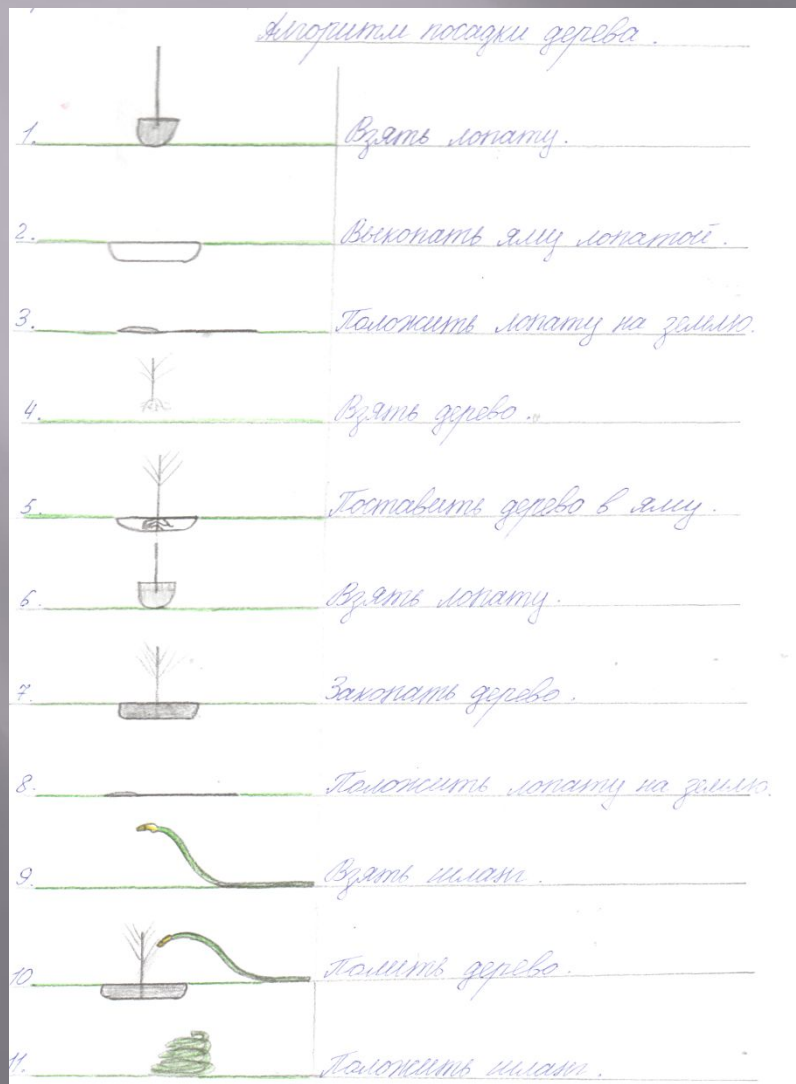 Алгоритм посадки дерева.
1. Взять лопату.
2. Выкопать яму лопатой.
3. Положить лопату на землю.
4. Взять дерево.
5. Поставить дерево в яму.
6. Взять лопату.
7. Закопать дерево.
8. Положить лопату на землю.
9. Взять шланг.
10. Полить дерево.
11. Положить шланг.